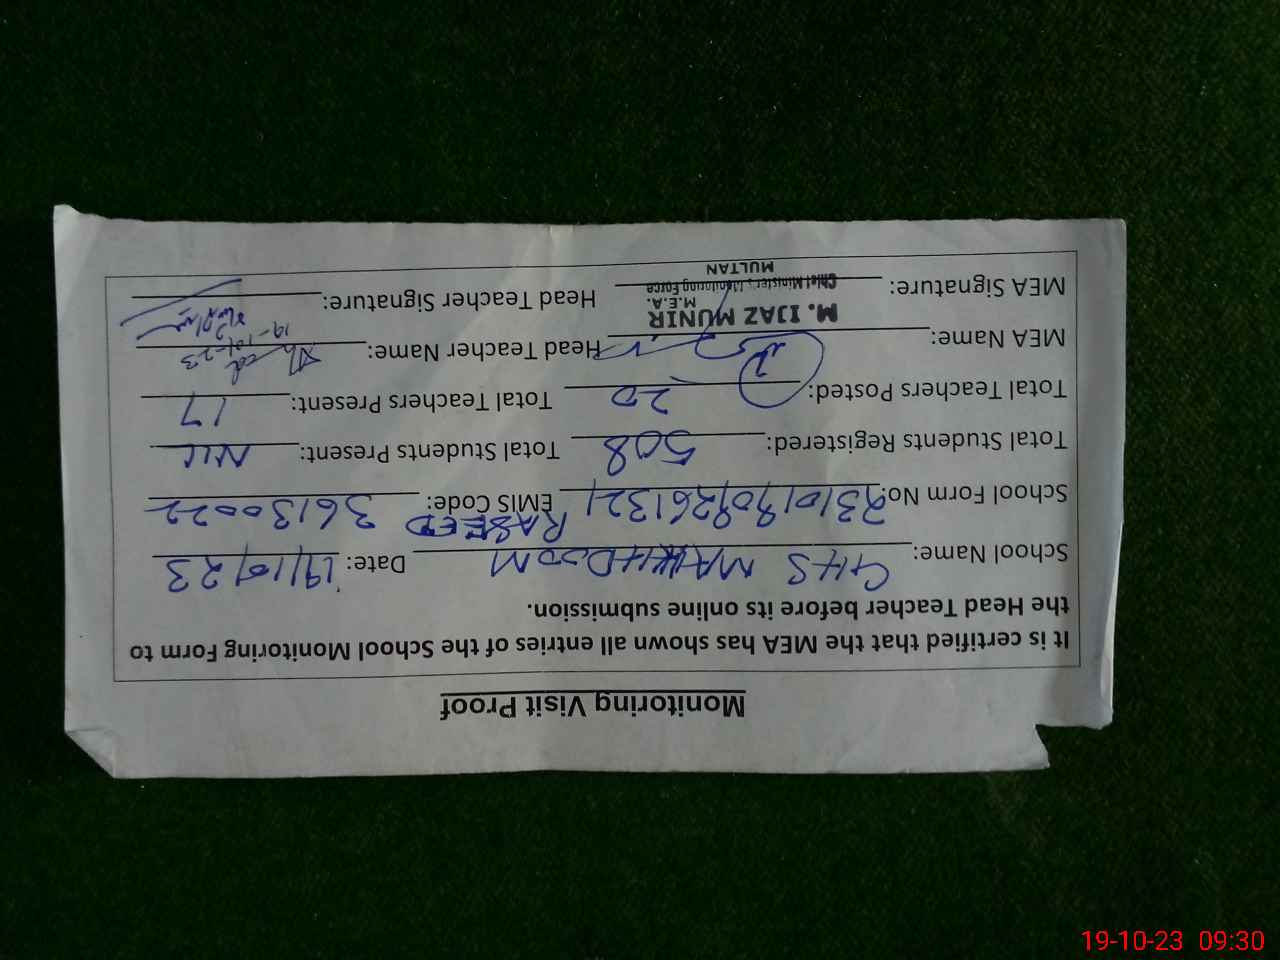 Monitoring Visit Proof
It is certified that the MEA has shown all entries of the School Monitoring Form to
the Head Teacher before its online submission.
School Name: GHS MAKHDOOM RASEED Date: 19/10/23
School Form No: 231019090261321 EMIS Code: 36130022
Total Students Registered: 508 Total Students Present: NIL
Total Teachers Posted: 20 Total Teachers Present: 17
MEA Name: Head Teacher Name: 19-10-23
M. IJAZ MUNIR
M.E.A.
MEA Signature: Head Teacher Signature:
Chief Minister's Monitoring Force
MULTAN
19-10-23 09:30